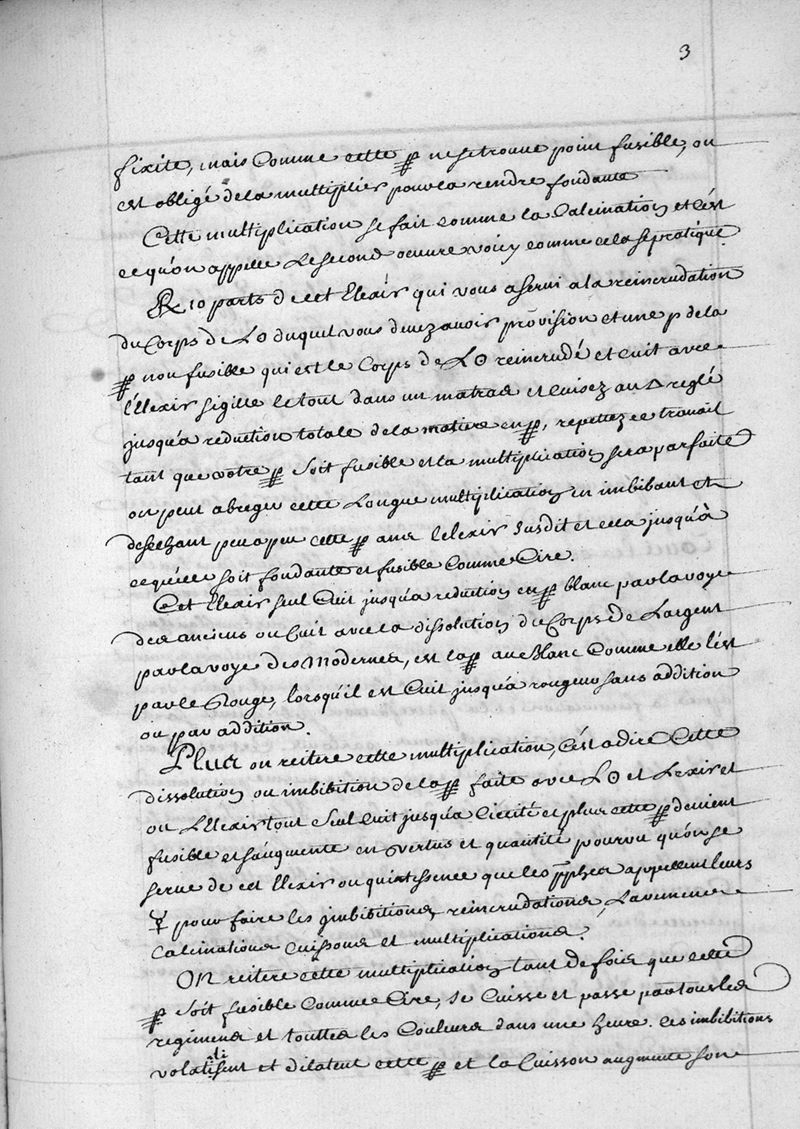 3
fixité, mais Comme cette ⅌ ne se trouve point fusible, on
est obligé de la multiplier pour la rendre fondante
Cette multiplication se fait comme la Calcination et c'ést
ce qu'on appelle Le second oeuvre voicy comme cela se pratique
℞ 10 parts de cet Elexir qui vous a servi a la reincrudation
du Corps de L☉ duquel vous devez avoir provision et une p de la
⅌ non fusible qui est le Corps de L☉ reincrudé et cuit avec
l'Elexir sigillé le tout dans un matras et cuisez au △ reglé
jusqu'a reduction totale de la matiere en ⅌, repettez ce travail
tant que votre ⅌ soit fusible et la multiplication sera parfaite
on peut abreger cette Longue multiplication en imbibant et
desechant peu a peu cette ⅌ avec l'elexir susdit et cela jusqu'à
ce qu'elle soit fondante et fusible Comme Cire.
Cet Elexir seul Cuit jusqu'a reduction en ⅌ blanc par la voye
des anciens ou Cuit avec la dissolution du Corps de L'argent
par la voye des Modernes, est la ⅌ au Blanc Comme elle l'est
par le Rouge, lorsqu'il est Cuit jusqu'a rougeur sans addition
ou par addition.
Plus on reitere cette multiplication, c'ést a dire Cette
dissolution ou imbibition de la ⅌ faite avec L☉ et L'exir et
ou L'Elexir tout seul cuit jusqu'a siccité et plus cette ⅌ devient
fusible et s'augmente en vertus et quantité pourvu qu'on se
serve de cet Elexir ou quintessence que les pphes appellent leurs
☿ pour faire les imbibitions, reincrudations, Lavemens
Calcinations cuissons et multiplications.
ON reitere cette multiplication tant de fois que cette
⅌ soit fusible Comme Cire, se Cuisse et passe par tous les
regimens et touttes les Couleurs dans une heure. les imbibitions
volatilisent et dilatent cette ⅌ et la Cuisson augmente son